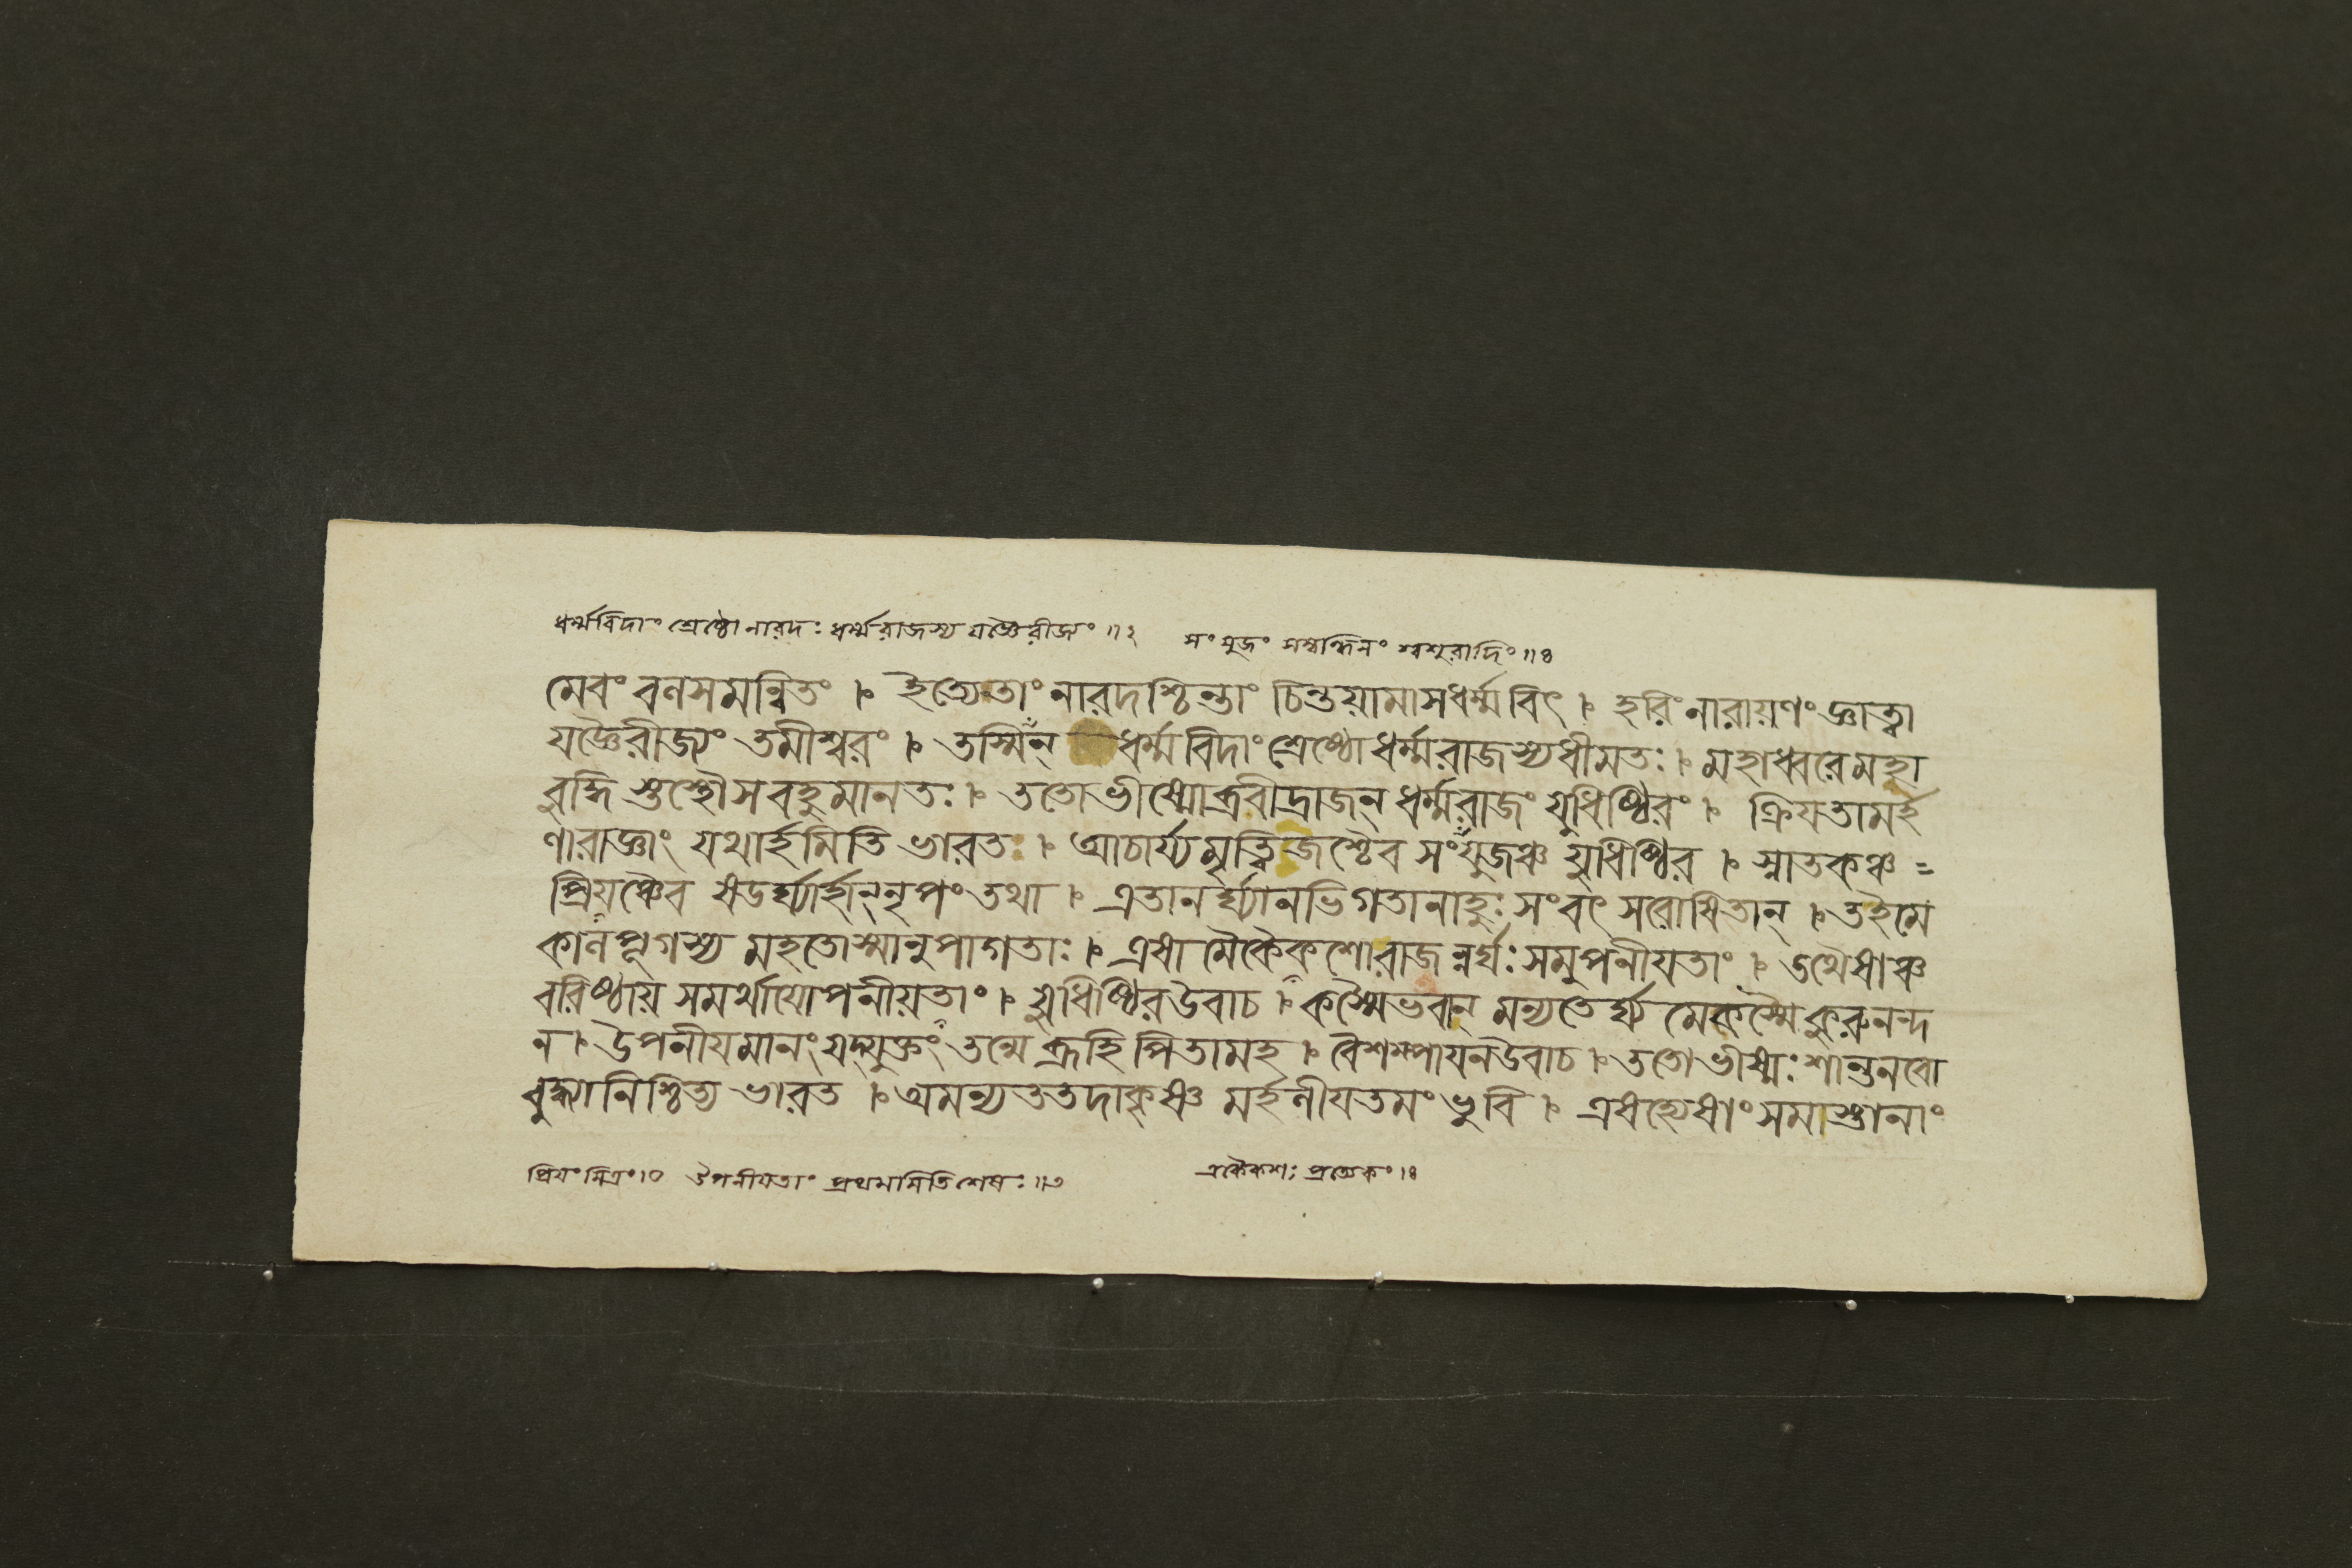 ধর্ম্মবিদাং শ্রেষ্ঠো নারদঃ ধর্ম্মরাজস্য যজ্ঞৈরীজ্যং ॥২ সংযুজং সম্বন্ধিনং শ্বশুরাদিং ॥৪
মেবং বলসমন্বিতং । ইত্যেতাং নারদশ্চিন্তাং চিন্তয়ামাস ধর্ম্মবিৎ । হরিং নারায়ণং জ্ঞাত্বা
যজ্ঞৈরীজ্যং তমীশ্বরং । তস্মিন্ ধর্ম্মবিদাং শ্রেষ্ঠো ধর্ম্মরাজস্য ধীমতঃ । মহাধ্বরে মহা
বুদ্ধিস্তস্থৌ স বহুমানতঃ । ততো ভীষ্মোব্রবীদ্রাজন্ ধর্ম্মরাজং যুধিষ্ঠিরং । ক্রিযতামর্হ
ণং রাজ্ঞাং যথার্হমিতি ভারতঃ । আচার্য্যমৃত্বিজশ্চৈব সংযুজঞ্চ যুধিষ্ঠির । স্নাতকঞ্চ =
প্রিযঞ্চৈব ষডর্ঘ্যার্হান্ নৃপং তথা । এতানর্ঘ্যানভিগতানাহুঃ সংবৎসরোষিতান্ । তইমে
কালপূগস্য মহতোস্মানুপাগতাঃ । এষামৈকৈকশো রাজন্নর্ঘঃ সমুপনীযতাং । তথৈষাঞ্চ
বরিষ্ঠায় সমর্থাযোপনীয়তাং । যুধিষ্ঠিরউবাচ । কস্মৈ ভবান্ মন্যতের্ঘ্য মেকস্মৈ কুরুনন্দ
ন । উপনীযমানং যদ্যুক্তং তন্মে ব্রূহি পিতামহ । বৈশম্পাযনউবাচ । ততো ভীষ্মঃ শান্তনবো
বুদ্ধ্যা নিশ্চিত্য ভারত । অমন্যত তদা কৃষ্ণ মর্হণীযতমং ভুবি । এষহ্যেষাং সমাস্তানাং
প্রিযং মিত্রং ।৫ উপনীযতাং প্রথমমিতি শেষঃ ॥৭ একৈকশঃ প্রত্যেকং ।৪